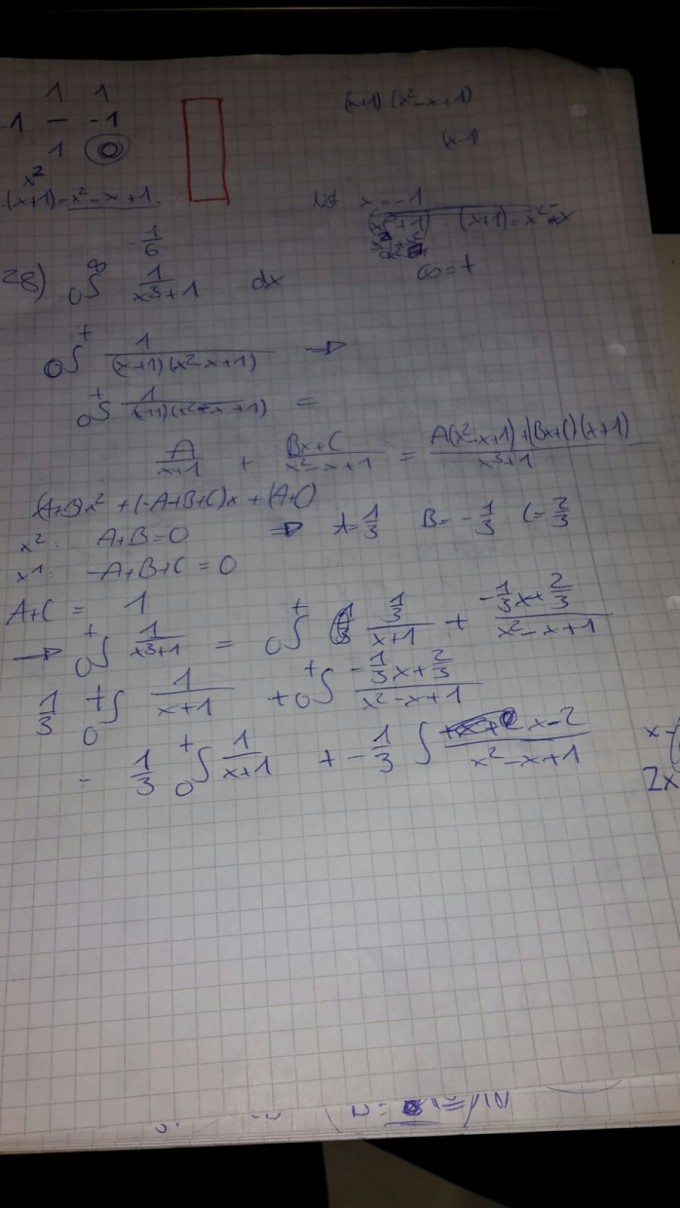 1 1
-1 – -1
1 0
(x+1) (x²-x+1)
(x-1)
x²
(x+1)=x²-x+1
x=-1
(x+1) = x²
∞=t
-1/6
28) ₀∫^∞ 1/(x³+1) dx
₀∫^t 1/((x+1)(x²-x+1)) →
₀∫^t 1/((x+1)(x²-x+1)) =
A/(x+1) + (Bx+C)/(x²-x+1) = (A(x²-x+1)+(Bx+C)(x+1))/(x³+1)
(A+B)x² + (-A+B+C)x + (A+C)
x²: A+B=0 ⇒ A=1/3 B=-1/3 C=2/3
x¹: -A+B+C=0
A+C = 1
→ ₀∫^t 1/(x³+1) = ₀∫^t (1/3)/(x+1) + (-1/3x+2/3)/(x²-x+1)
1/3 ₀∫^t 1/(x+1) + ₀∫^t (-1/3x+2/3)/(x²-x+1)
= 1/3 ₀∫^t 1/(x+1) + -1/3 ∫ (x-2)/(x²-x+1)
x-
2x